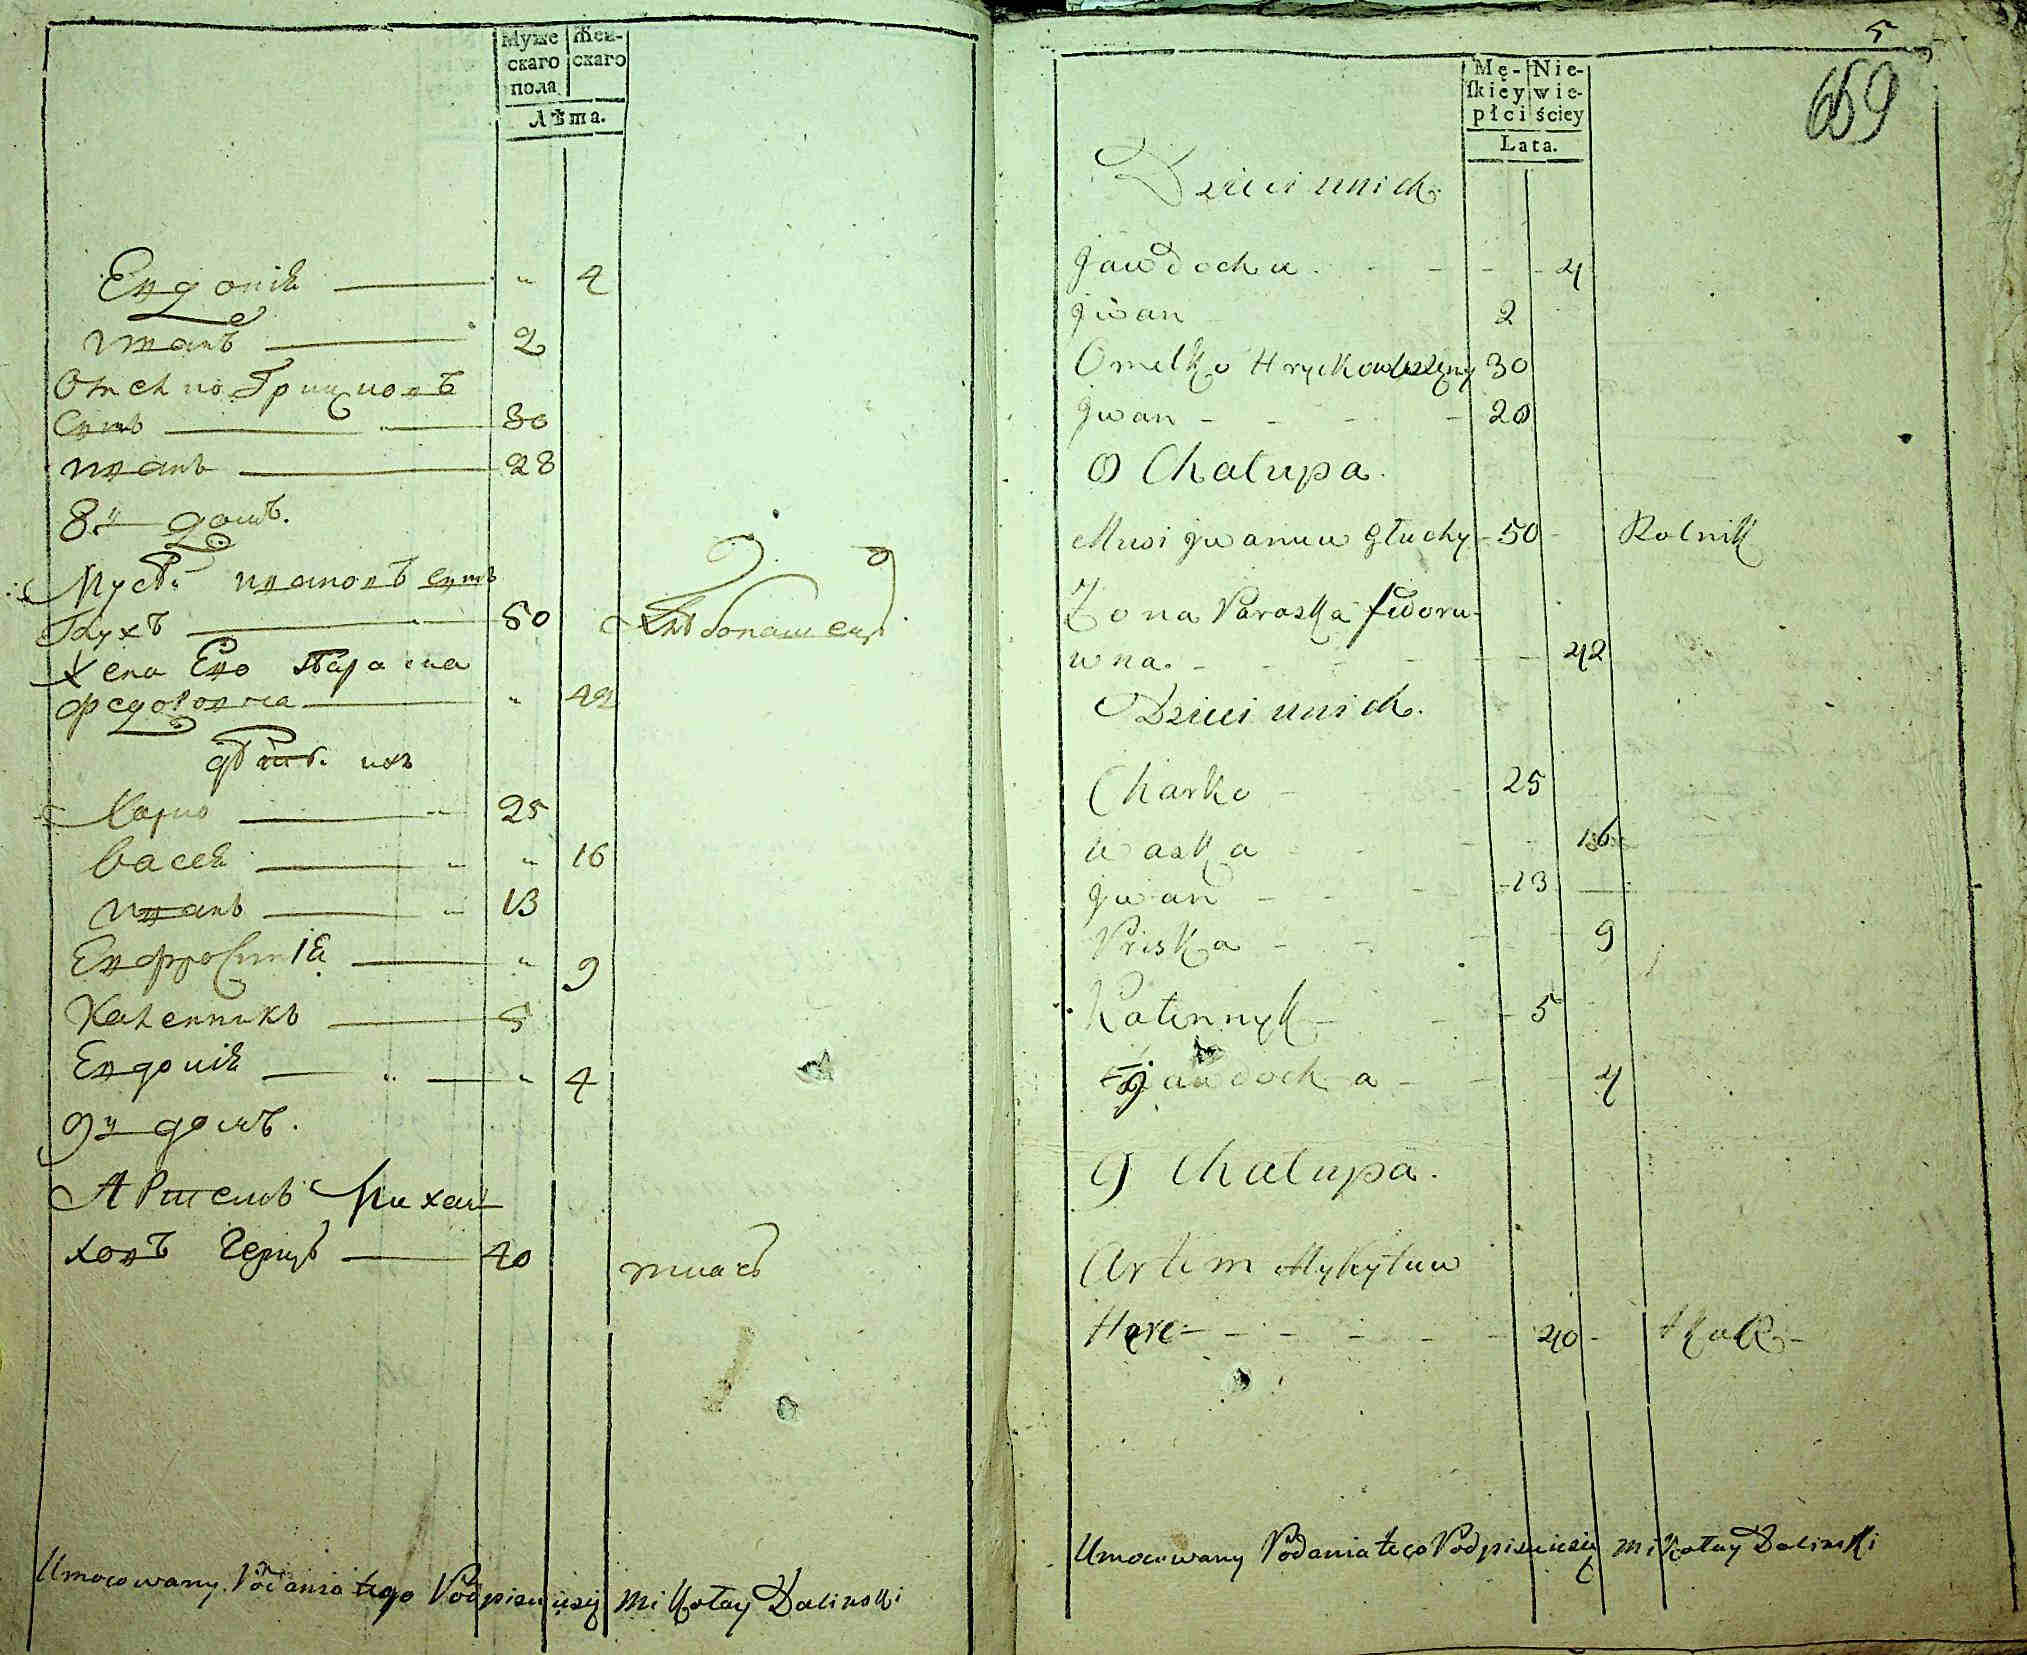 Муже
скаго
пола
Жен-
скаго
Лѣта.
Евдокія — " 4
Иванъ — 2
Омелко Грицковъ
Сынъ — 30
Иванъ — 28
8й домъ.
Мусѣй Ивановъ сынъ
Глухъ — 50
Жена Его Параска
Федоровна — " 42
дѣти ихъ
Харко — 25
Васса — " 16
Иванъ — 13
Евфросинія — " 9
Каленникъ — 5
Евдокія — " 4
9й домъ.
Артемъ
40 ткачъ
Umocowany Podania tego Podpisuię się Mikołay Dalinski
5
659
Mę-
skiey
płci
Nie-
wie-
ściey
Lata.
Dzieci u nich
Jawdocha - - - 4
Jwan 2
Omelko 30
Jwan - - - 20
8 Chałupa.
Musi Jwanuw Głuchy - 50 - Rolnik
Zona Paraska fedoru-
wna. - - - 42
Dzieci u nich.
Charko - - 25
Waska - - 16
Jwan - - 13
Priska - - 9
Kalennyk - - 5
Jawdocha - - 4
9 Chałupa.
Artem Mykytuw
40 - tkacz -
Umocowany Podania tego Podpisuię się Mikołay Dalinski